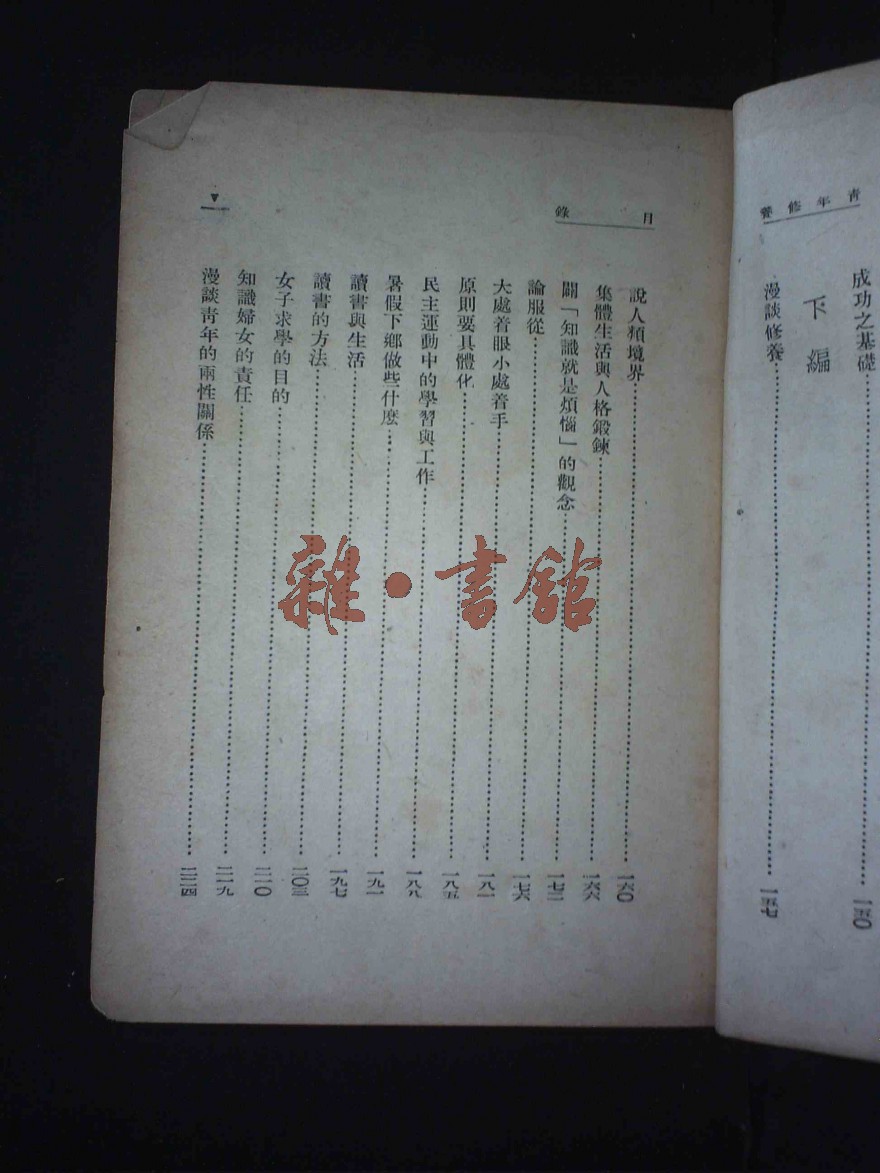 青年修養
成功之基礎……一五〇
下編
漫談修養……一五七
目錄
說人類境界……一六〇
集體生活與人格鍛鍊……一六六
闢「知識就是煩惱」的觀念……一七二
論服從……一七六
大處着眼小處着手……一八一
原則要具體化……一八五
民主運動中的學習與工作……一八八
暑假下鄉做些什麼……一九一
讀書與生活……一九七
讀書的方法……二〇三
女子求學的目的……二一〇
知識婦女的責任……二一九
漫談青年的兩性關係……二二四
雜·書館